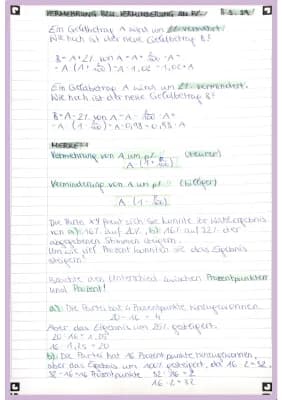 VERMEHRUNG BZW. VERMINDERUNG AN
Ein Geldbetrag A wird um 2% vermehrt.
Wie hoch ist der neue Geldbetrag B?
B = A + 2% von A = A + 2/100 · A =
= A · (1 + 2/100) = A · 1,02 = 1,02 · A
Ein Geldbetrag A wird um 2% vermindert.
Wie hoch ist der neue Geldbetrag B?
B = A - 2% von A = A - 2/100 · A =
= A · (1 - 2/100) = A · 0,98 = 0,98 · A
MERKE:
Vermehrung von A um p% (teurer)
A · (1 + p/100)
Verminderung von A um p% (billiger)
A · (1 - p/100)
Die Partei XY freut sich. Sie konnte ihr Wahlergebnis
von a) 16% auf 20%, b) 16% auf 32% der
abgegebenen Stimmen steigern.
Um wie viel Prozent konnte sie das Ergebnis
steigern?
Beachte den Unterschied zwischen Prozentpunkten
und Prozent!
a) Die Partei hat 4 Prozentpunkte hinzugewonnen
20 - 16 = 4
Aber das Ergebnis um 25% gesteigert.
20 : 16 = 1,25
16 · 1,25 = 20
b) Die Partei hat 16 Prozentpunkte hinzugewonnen,
aber das Ergebnis um 100% gesteigert, da 16 · 2 = 32.
32 - 16 = 16 Prozentpunkte 32 : 16 = 2
16 · 2 = 32